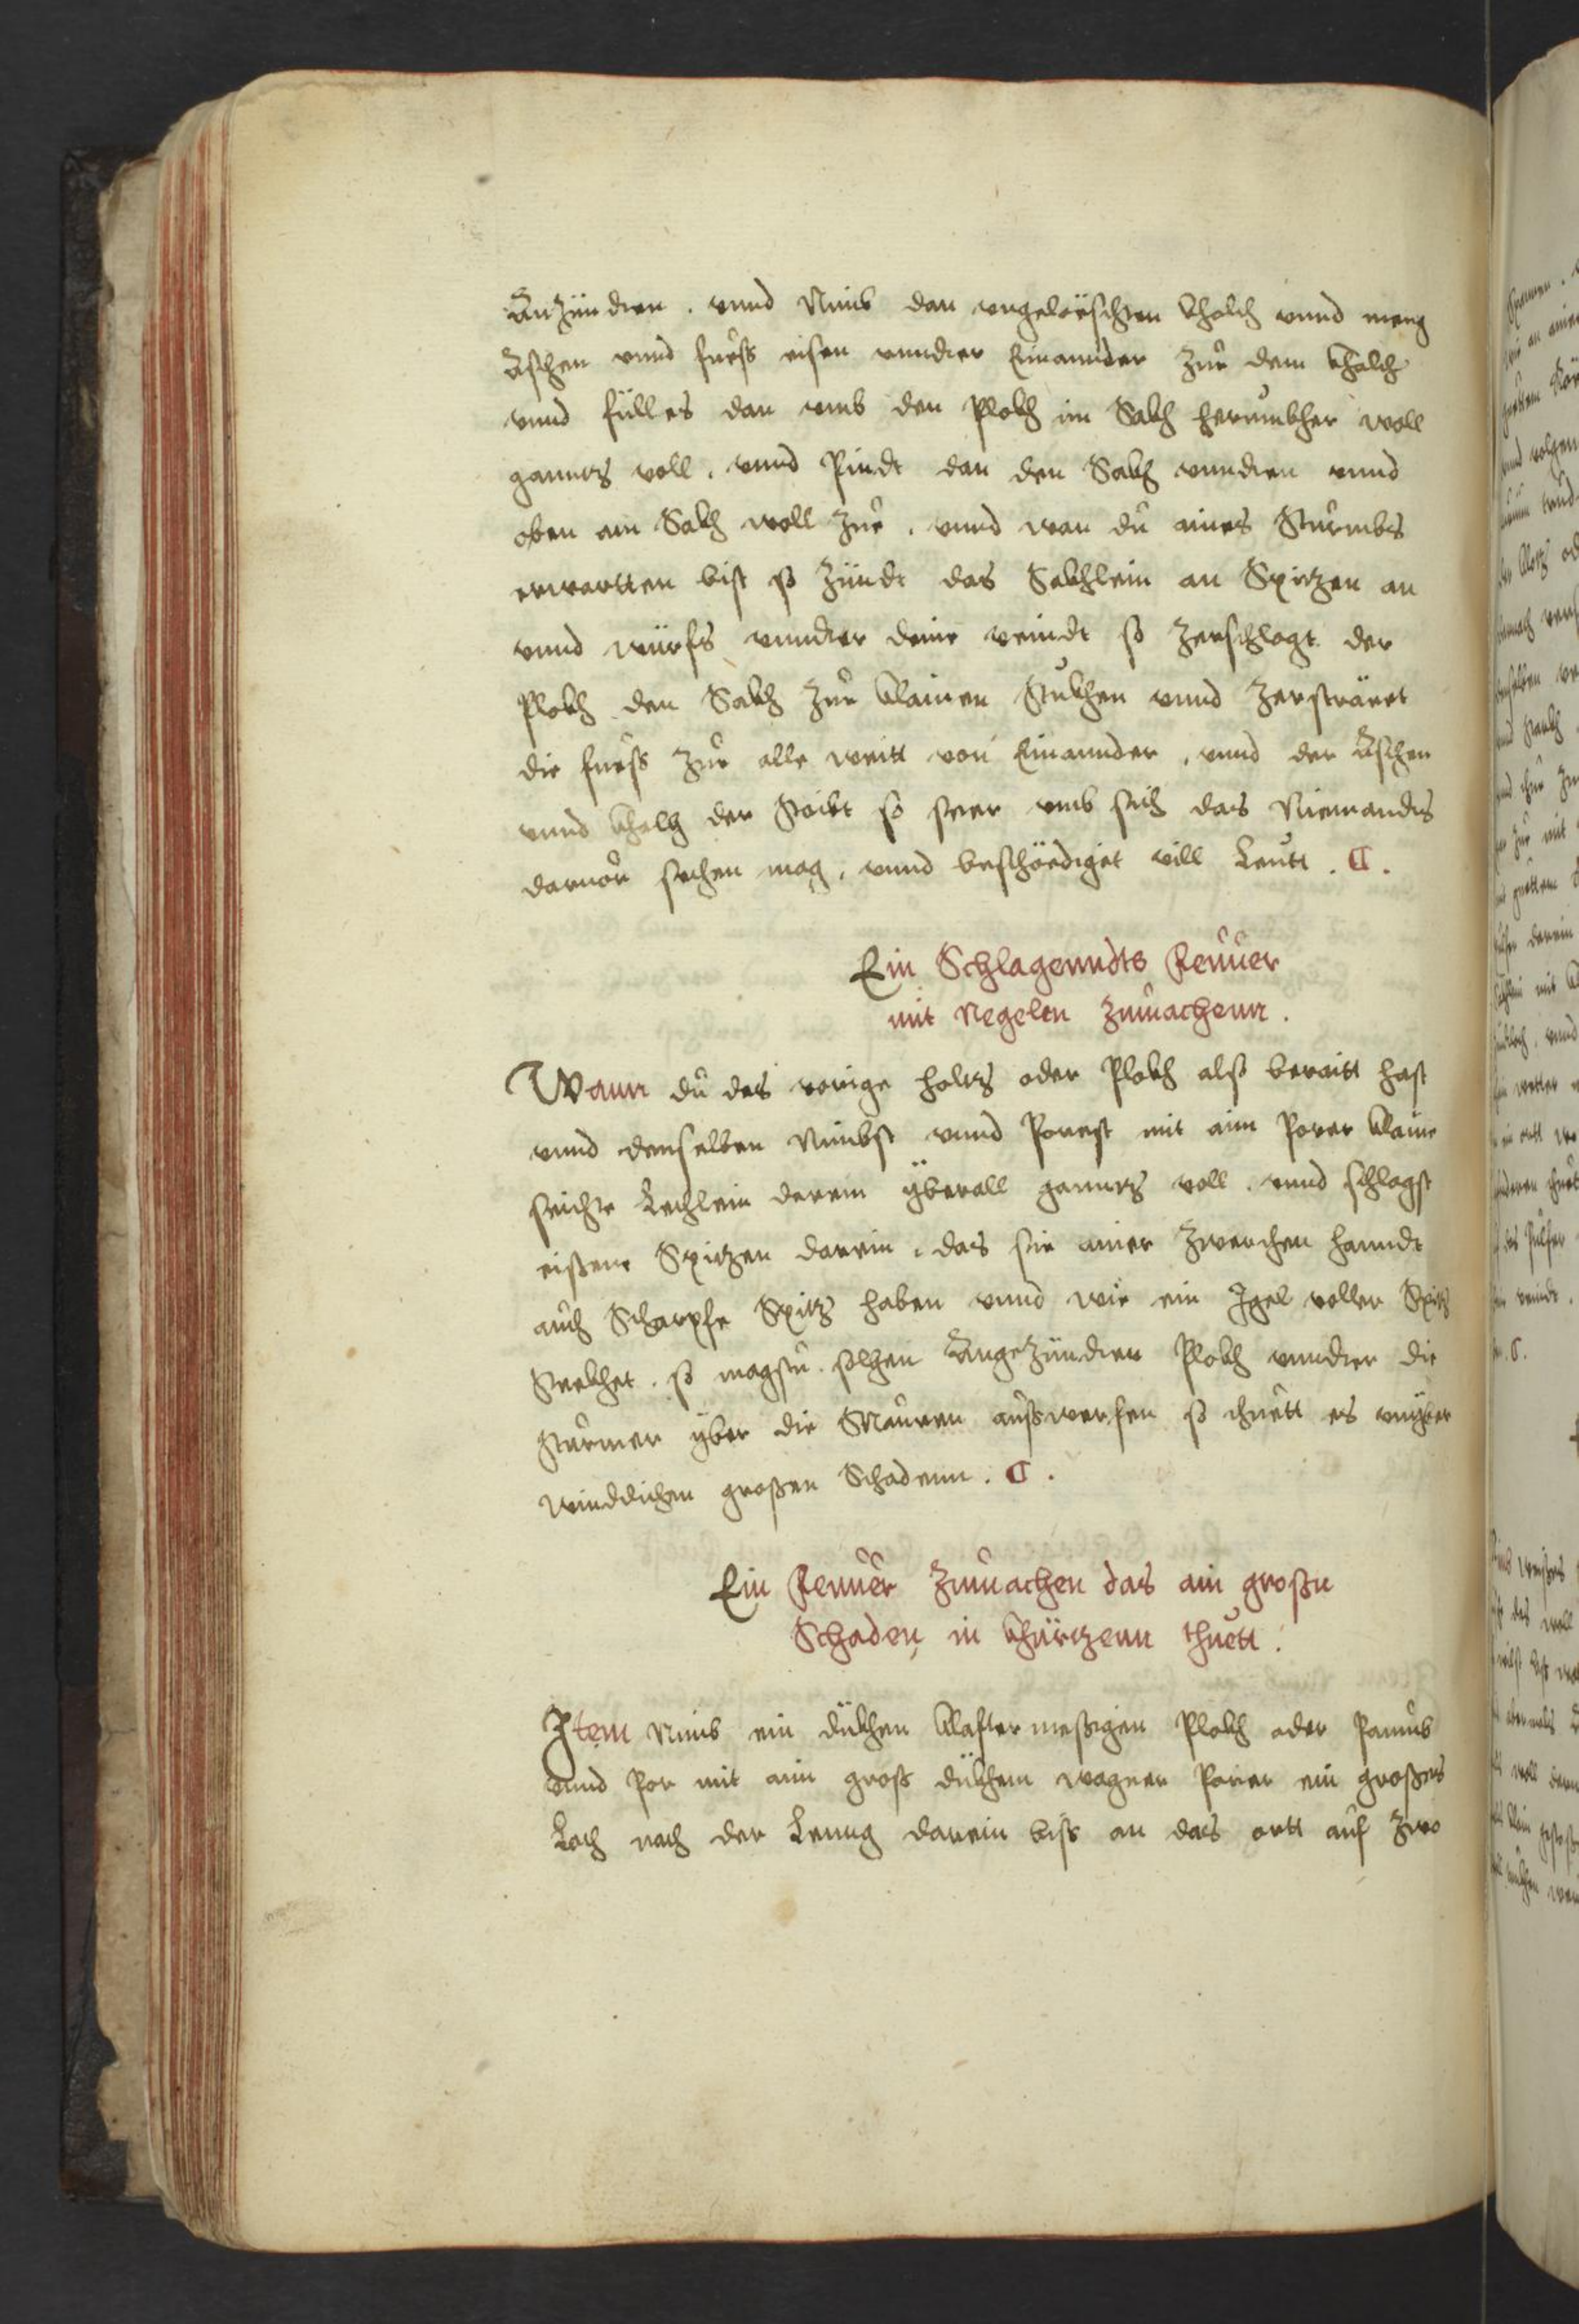 Anzünndten . vnnd Nimb dan vngelöschten khalch vnnd meng
Aschen vnnd fueß eisen vnndter Einannder zue dem khalch
vnnd fülles dan vmb den Plokh im Sakh herumbher woll
ganntz voll . vnnd Pindt dan den Sakh vnndten vnnd
oben am Sakh woll zue . vnnd wan du aines Sturmbs
erwartten bist so zündt das Sakhlein an Spitzen an
vnnd würfs vnndter deine veindt so zerschlagt der
Plokh den Sakh zue klainen Stukhen vnnd zerströret
die fueß zue alle weitt von Einannder . vnnd der Aschen
vnnd khalch der Stibt so seer vmb sich das Niemandts
daruor sechen mag . vnnd beschödiget vill Leutt .
Ein Schlagenndts Feuuer
mit Negelen zumachenn .
Wann du das vorige holtz oder Plokh alß beraitt hast
vnnd denselben Nimbst vnnd Porest mit aim Porer klaine
seichte Lechlein darein yberall ganntz voll . vnnd schlagst
eißene Spitzen darein . das sie ainer zwerchen hanndt
auch Scharpfe Spitz haben vnnd wie ein Igel voller Spitz
Stekhet . so magstu solchen Angezündten Plokh vnndter die
Sturmer yber die Mauren außwerfen so thuett es vnyber
windtlichen großen Schadenn .
Ein Feuuer zumachen das ain großn
Schaden in khürtzenn thuett .
Item Nimb ein dükhen klaftermeßigen Plokh oder Pamub
vnnd Por mit aim groß dükhem wagner Porer ein großes
Loch nach der Lenng darein biß an das ortt auf zwo